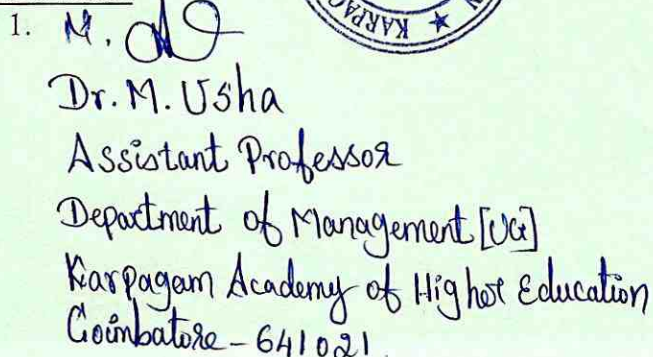 KARPAG
1. M.
Dr. M. Usha
Assistant Professor
Department of Management [UG]
Karpagam Academy of Higher Education
Coimbatore - 641021.